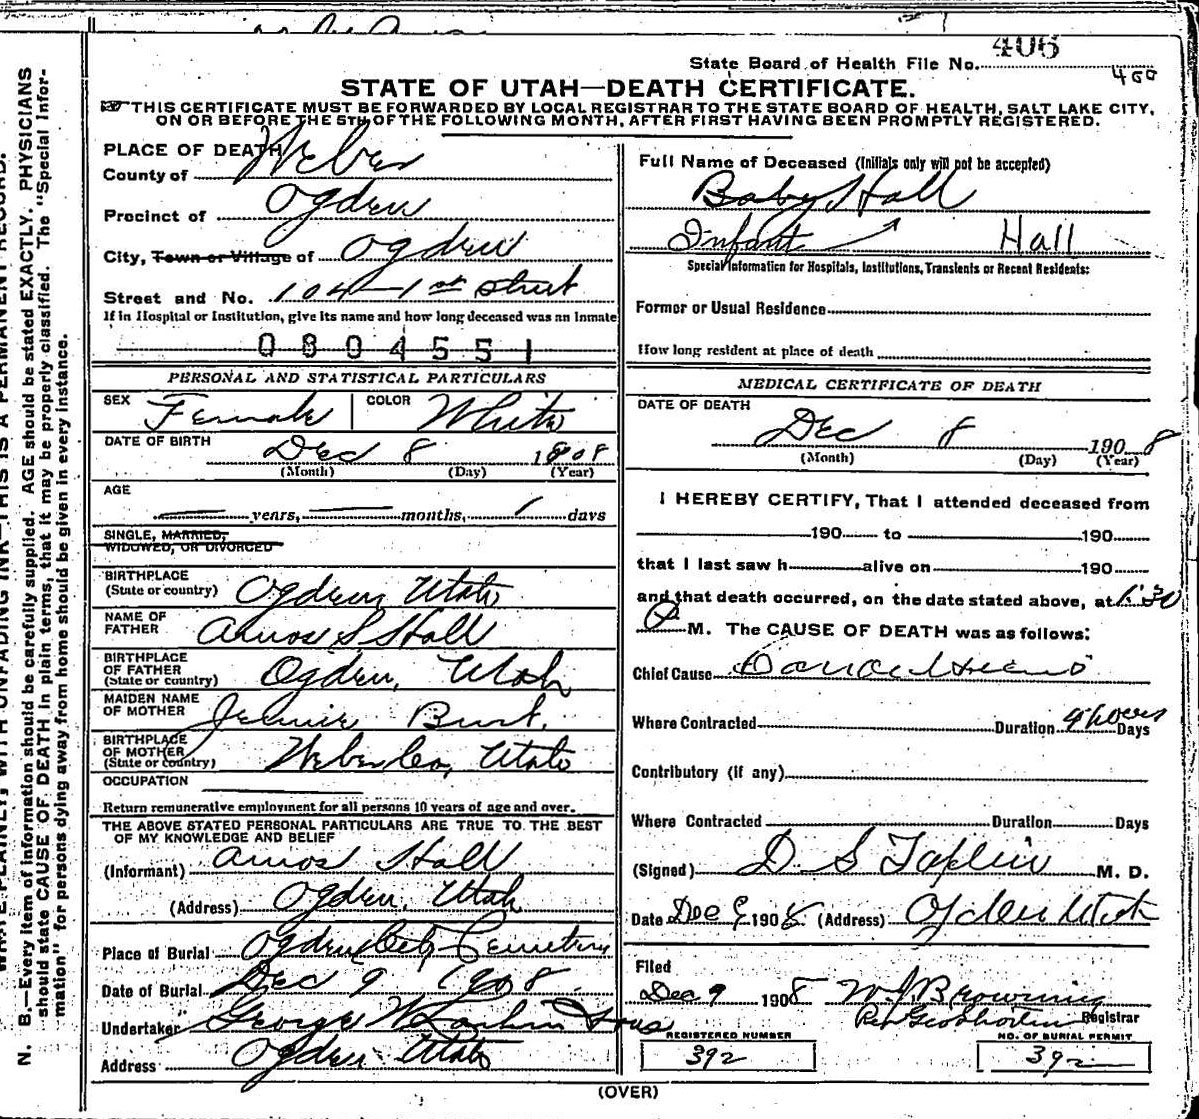 406
State Board of Health File No.
400
STATE OF UTAH—DEATH CERTIFICATE.
THIS CERTIFICATE MUST BE FORWARDED BY LOCAL REGISTRAR TO THE STATE BOARD OF HEALTH, SALT LAKE CITY,
ON OR BEFORE THE 5TH OF THE FOLLOWING MONTH, AFTER FIRST HAVING BEEN PROMPTLY REGISTERED.
N. B.—Every item of information should be carefully supplied. AGE should be stated EXACTLY. PHYSICIANS
should state CAUSE OF DEATH in plain terms, that it may be properly classified. The "Special Infor-
mation" for persons dying away from home should be given in every instance.
PLACE OF DEATH
County of Weber
Precinct of Ogden
City, Town or Village of Ogden
Street and No. 104 – 1st Street
If in Hospital or Institution, give its name and how long deceased was an inmate
0804551
PERSONAL AND STATISTICAL PARTICULARS
SEX Female COLOR White
DATE OF BIRTH Dec 8 1908
(Month) (Day) (Year)
AGE
years, months, 1 days
SINGLE, MARRIED,
WIDOWED, OR DIVORCED
BIRTHPLACE
(State or country) Ogden Utah
NAME OF
FATHER Amos S Hall
BIRTHPLACE
OF FATHER
(State or country) Ogden, Utah
MAIDEN NAME
OF MOTHER Jennie Burt.
BIRTHPLACE
OF MOTHER
(State or country) Weber Co, Utah
OCCUPATION
Return remunerative employment for all persons 10 years of age and over.
THE ABOVE STATED PERSONAL PARTICULARS ARE TRUE TO THE BEST
OF MY KNOWLEDGE AND BELIEF
(Informant) Amos Hall
(Address) Ogden, Utah
Place of Burial Ogden City Cemetery
Date of Burial Dec 9 1908
Undertaker George W Larkin & Sons
Address Ogden Utah
Full Name of Deceased (Initials only will not be accepted)
Baby Hall
Infant Hall
Special Information for Hospitals, Institutions, Transients or Recent Residents:
Former or Usual Residence
How long resident at place of death
MEDICAL CERTIFICATE OF DEATH
DATE OF DEATH
Dec 8 1908
(Month) (Day) (Year)
I HEREBY CERTIFY, That I attended deceased from
190 to 190
that I last saw h alive on 190
and that death occurred, on the date stated above, at 1:30
P M. The CAUSE OF DEATH was as follows:
Chief Cause
Where Contracted Duration hours Days
Contributory (if any)
Where Contracted Duration Days
(Signed) D. S Taplin M. D.
Date Dec 9 1908 (Address) Ogden Utah
Filed
Dec 9 1908 W J Browning
Registrar
REGISTERED NUMBER NO. OF BURIAL PERMIT
392 392
(OVER)